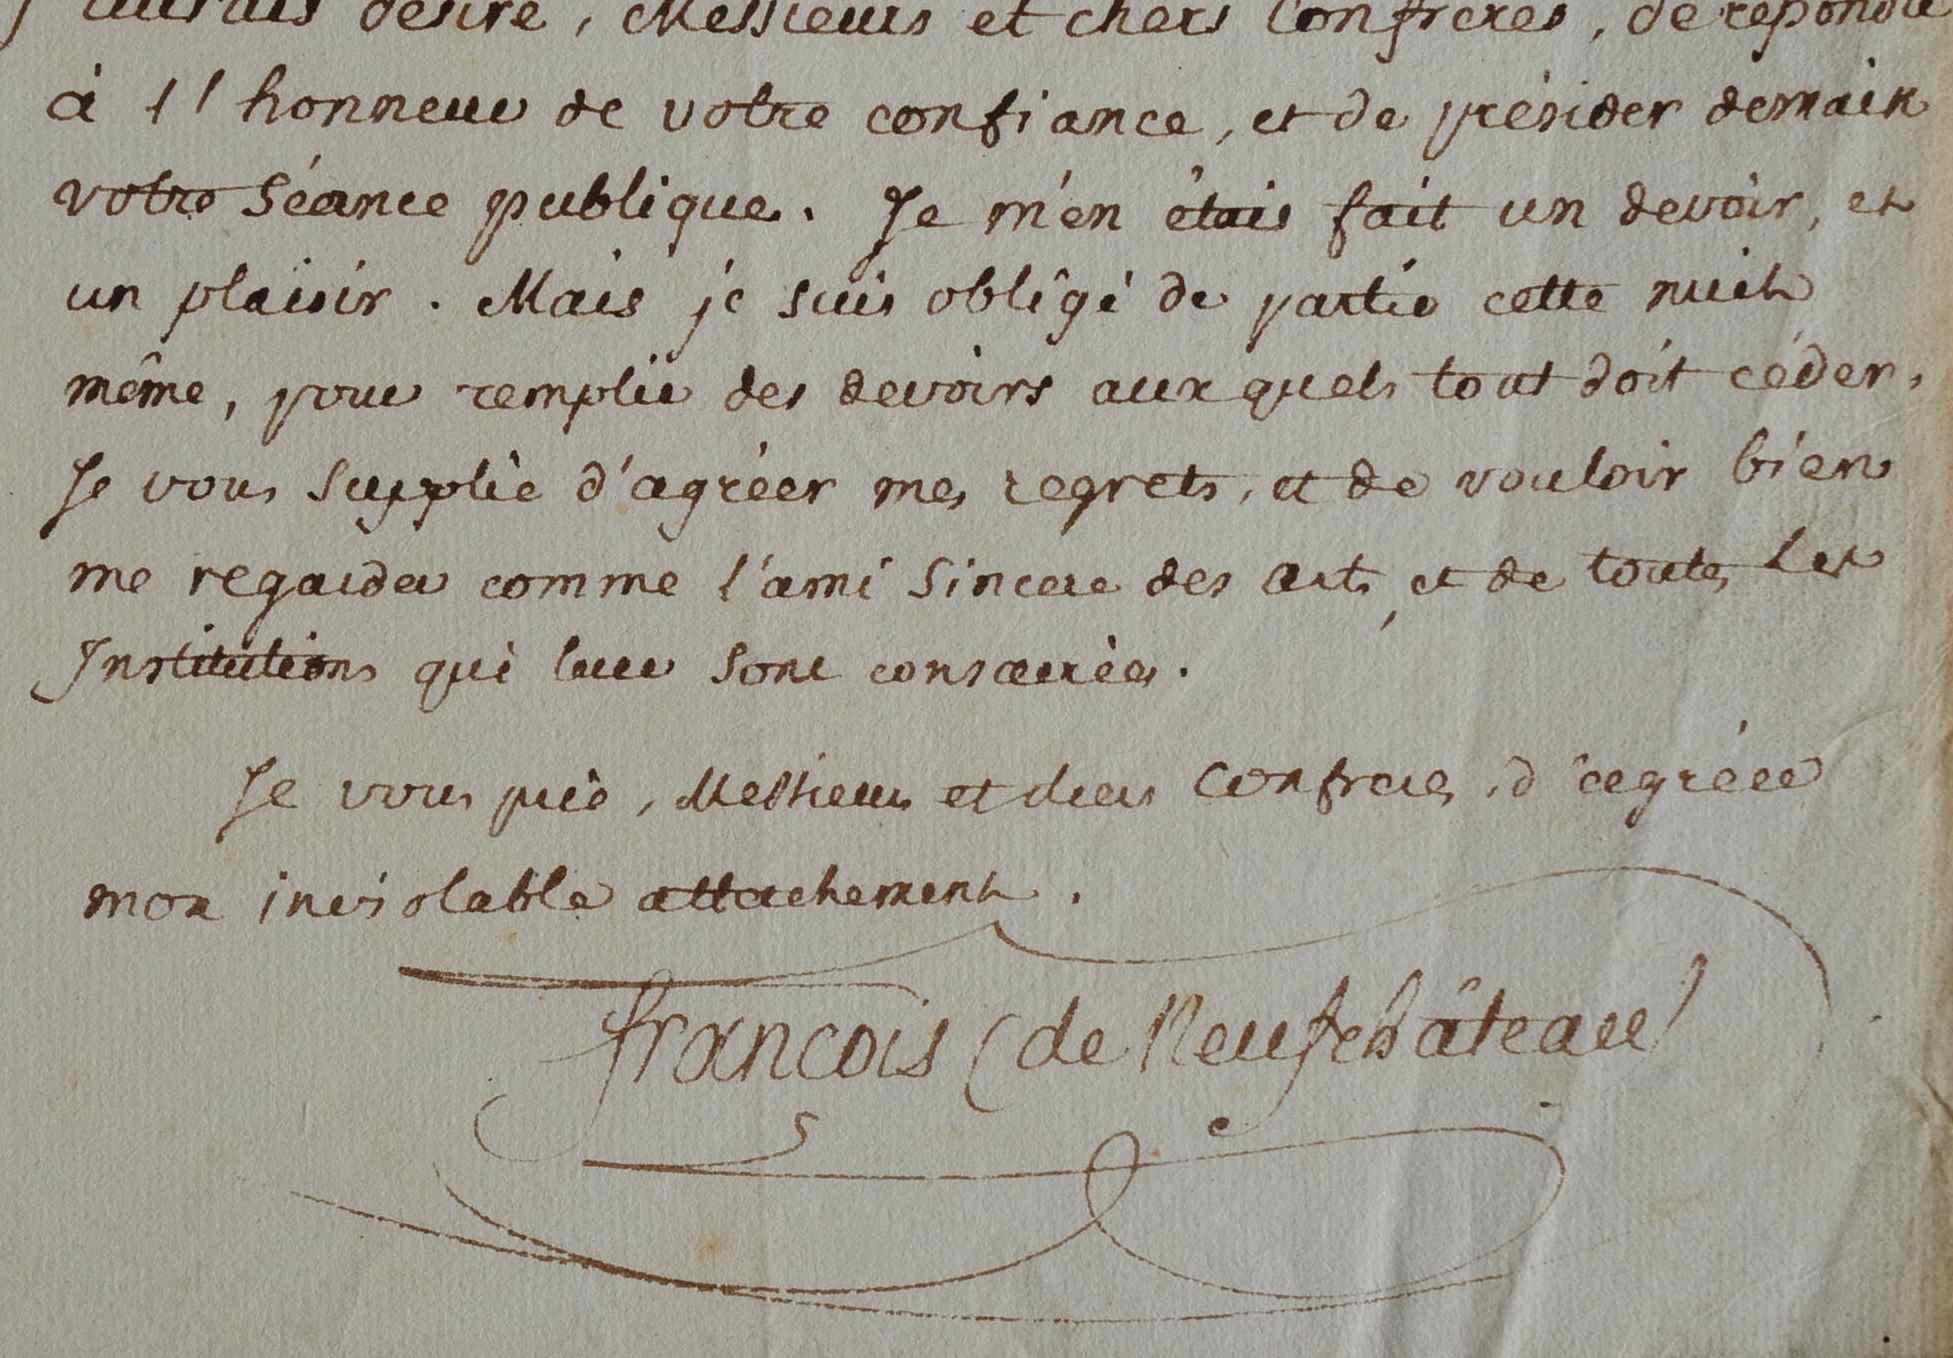 J'aurais désiré, Messieurs et chers Confrères, de répondre
à l'honneur de votre confiance, et de présider demain
votre Séance publique. Je m'en étais fait un devoir, et
un plaisir. Mais je suis obligé de partir cette nuit
même, pour remplir des devoirs auxquels tout doit céder.
Je vous supplie d'agréer mes regrets, et de vouloir bien
me regarder comme l'ami sincere des arts, et de toutes les
Institutions qui leur sont consacrées.
Je vous prie, Messieurs et chers Confreres, d'agréer
mon inviolable attachement.
françois (de Neufchâteau)